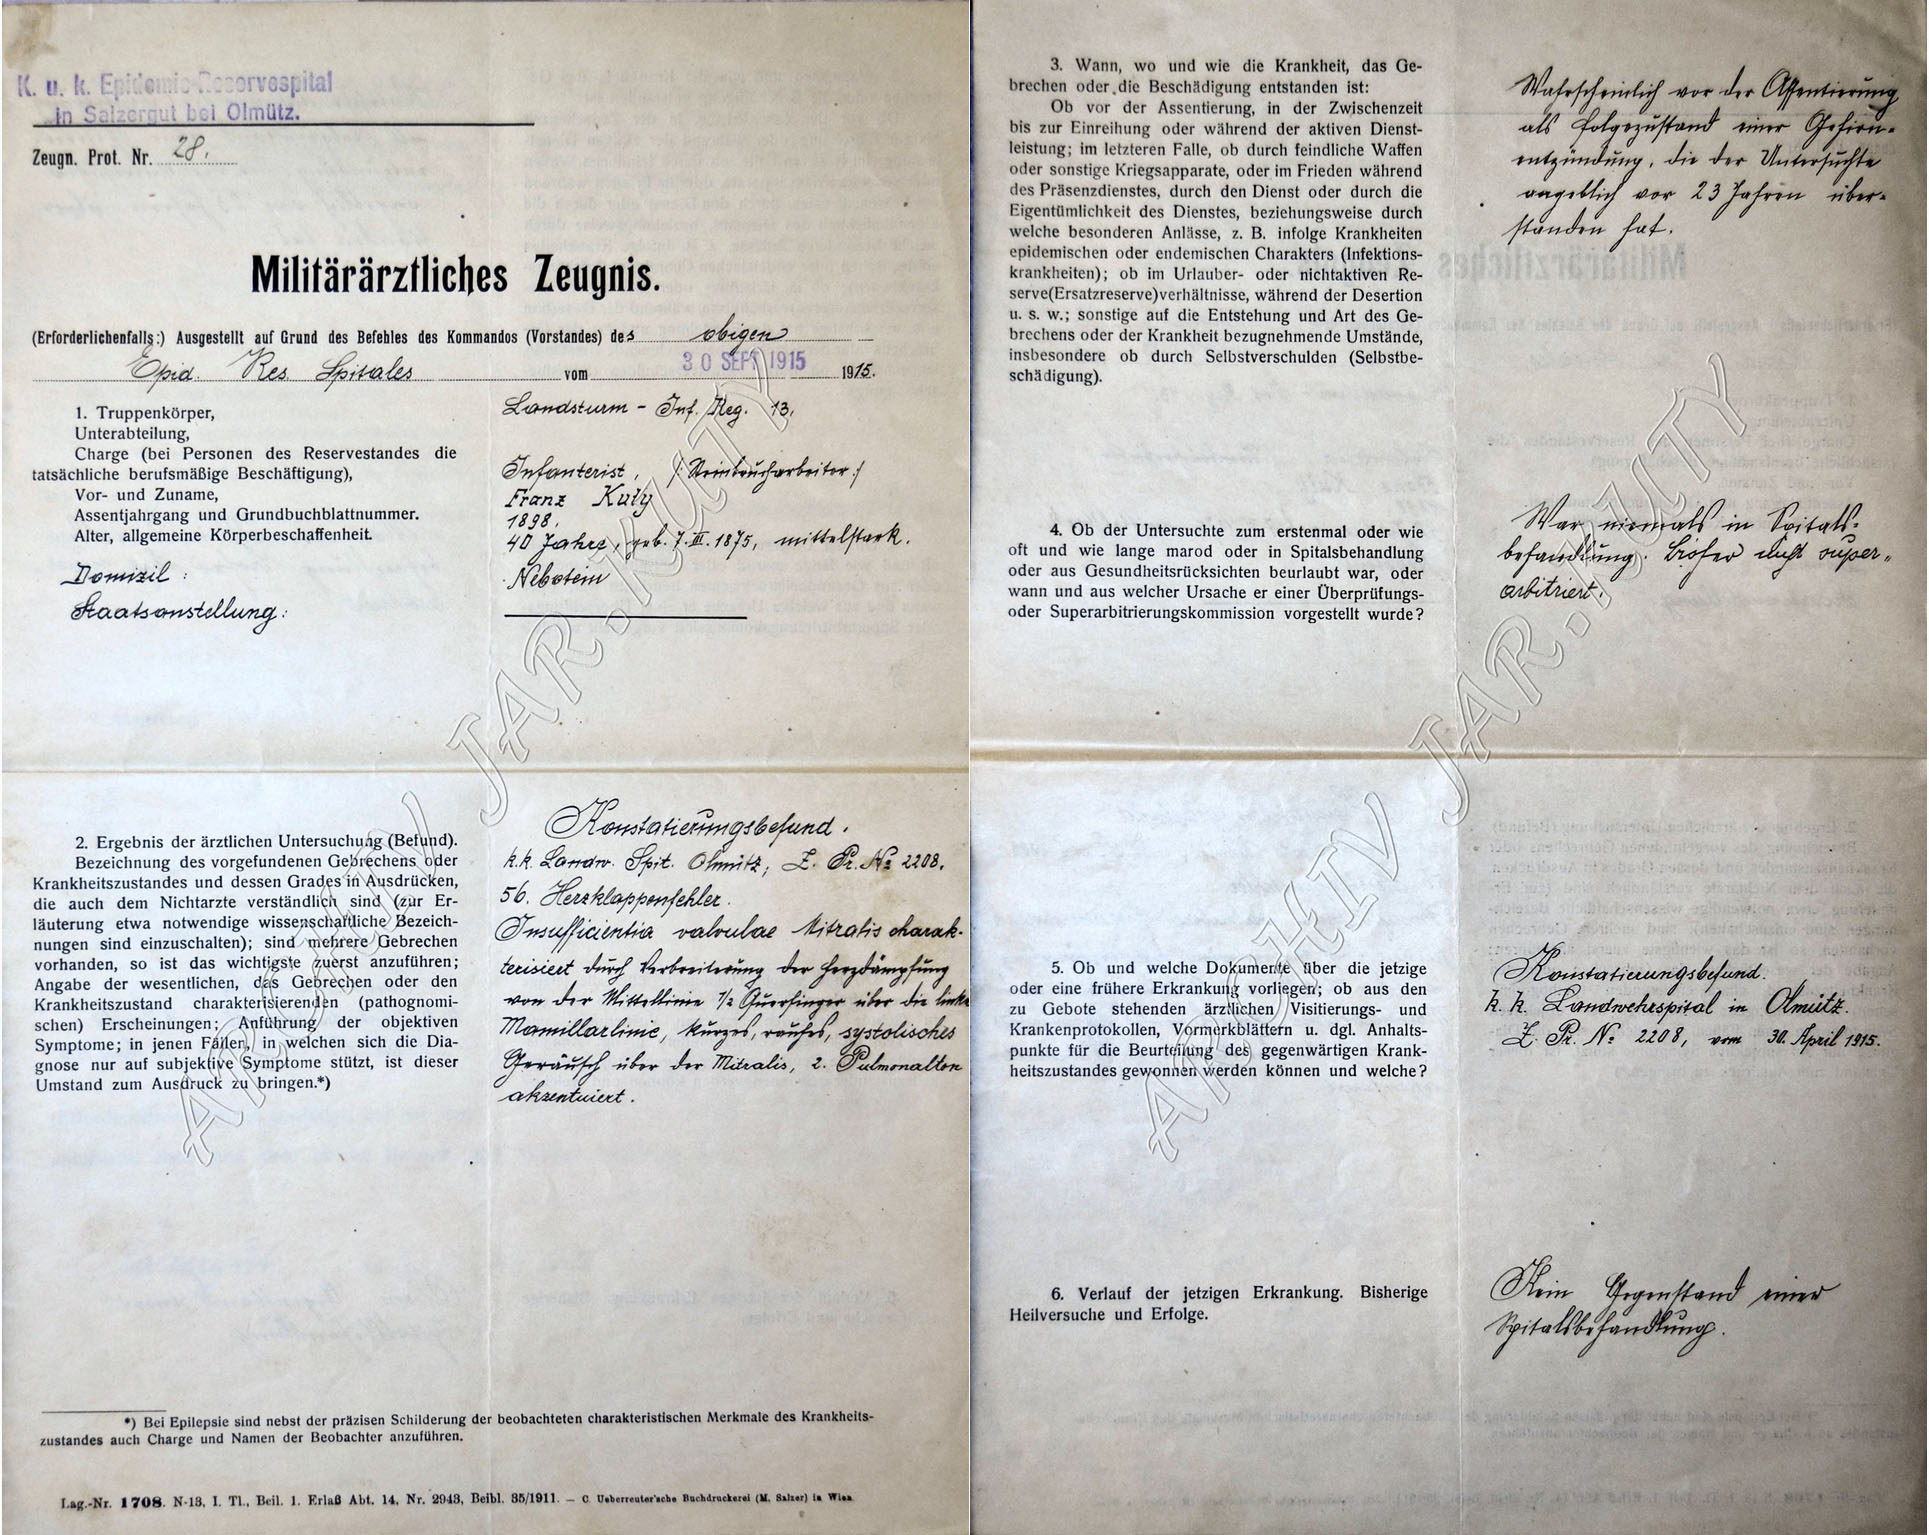 K. u. k. Epidemie-Reservespital
in Salzergut bei Olmütz.
Zeugn. Prot. Nr. 28.
Militärärztliches Zeugnis.
(Erforderlichenfalls:) Ausgestellt auf Grund des Befehles des Kommandos (Vorstandes) des obigen
Epid. Res. Spitales vom 30 SEPT 1915 1915.
1. Truppenkörper,
Unterabteilung,
Charge (bei Personen des Reservestandes die
tatsächliche berufsmäßige Beschäftigung),
Vor- und Zuname,
Assentjahrgang und Grundbuchblattnummer.
Alter, allgemeine Körperbeschaffenheit.
Domizil:
Staatsanstellung:
Landsturm - Inf. Reg. 13.
Infanterist, /: Steinbrucharbeiter :/
Franz Kutý
1898.
40 Jahre, geb. 7. III. 1875, mittelstark.
Nebotein
2. Ergebnis der ärztlichen Untersuchung (Befund).
Bezeichnung des vorgefundenen Gebrechens oder
Krankheitszustandes und dessen Grades in Ausdrücken,
die auch dem Nichtarzte verständlich sind (zur Er-
läuterung etwa notwendige wissenschaftliche Bezeich-
nungen sind einzuschalten); sind mehrere Gebrechen
vorhanden, so ist das wichtigste zuerst anzuführen;
Angabe der wesentlichen, das Gebrechen oder den
Krankheitszustand charakterisierenden (pathognomi-
schen) Erscheinungen; Anführung der objektiven
Symptome; in jenen Fällen, in welchen sich die Dia-
gnose nur auf subjektive Symptome stützt, ist dieser
Umstand zum Ausdruck zu bringen.*)
Konstatierungsbefund.
k. k. Landw. Spit. Olmütz, Z. Pr. No 2208.
56. Herzklappenfehler.
Insufficientia valvulae Mitralis charak-
terisiert durch Verbreiterung der Herzdämpfung
von der Mittellinie 1/2 Querfinger über die linke
Mamillarlinie, kurzes, rauhes, systolisches
Geräusch über der Mitralis, 2. Pulmonalton
akzentuiert.
*) Bei Epilepsie sind nebst der präzisen Schilderung der beobachteten charakteristischen Merkmale des Krankheits-
zustandes auch Charge und Namen der Beobachter anzuführen.
Lag.-Nr. 1708. N-13, I. Tl., Beil. 1. Erlaß Abt. 14, Nr. 2943, Beibl. 35/1911. — C. Ueberreuter'sche Buchdruckerei (M. Salzer) in Wien.
3. Wann, wo und wie die Krankheit, das Ge-
brechen oder die Beschädigung entstanden ist:
Ob vor der Assentierung, in der Zwischenzeit
bis zur Einreihung oder während der aktiven Dienst-
leistung; im letzteren Falle, ob durch feindliche Waffen
oder sonstige Kriegsapparate, oder im Frieden während
des Präsenzdienstes, durch den Dienst oder durch die
Eigentümlichkeit des Dienstes, beziehungsweise durch
welche besonderen Anlässe, z. B. infolge Krankheiten
epidemischen oder endemischen Charakters (Infektions-
krankheiten); ob im Urlauber- oder nichtaktiven Re-
serve(Ersatzreserve)verhältnisse, während der Desertion
u. s. w.; sonstige auf die Entstehung und Art des Ge-
brechens oder der Krankheit bezugnehmende Umstände,
insbesondere ob durch Selbstverschulden (Selbstbe-
schädigung).
Wahrscheinlich vor der Assentierung
als Folgezustand einer Gehirn-
entzündung, die der Untersuchte
angeblich vor 23 Jahren über-
standen hat.
4. Ob der Untersuchte zum erstenmal oder wie
oft und wie lange marod oder in Spitalsbehandlung
oder aus Gesundheitsrücksichten beurlaubt war, oder
wann und aus welcher Ursache er einer Überprüfungs-
oder Superarbitrierungskommission vorgestellt wurde?
War niemals in Spitals-
behandlung. Bisher nicht super-
arbitriert.
5. Ob und welche Dokumente über die jetzige
oder eine frühere Erkrankung vorliegen; ob aus den
zu Gebote stehenden ärztlichen Visitierungs- und
Krankenprotokollen, Vormerkblättern u. dgl. Anhalts-
punkte für die Beurteilung des gegenwärtigen Krank-
heitszustandes gewonnen werden können und welche?
Konstatierungsbefund.
k. k. Landwehrspital in Olmütz.
Z. Pr. No 2208, vom 30. April 1915.
6. Verlauf der jetzigen Erkrankung. Bisherige
Heilversuche und Erfolge.
Kein Gegenstand einer
Spitalsbehandlung.
ARCHIV JAR. KUTÝ
ARCHIV JAR. KUTÝ